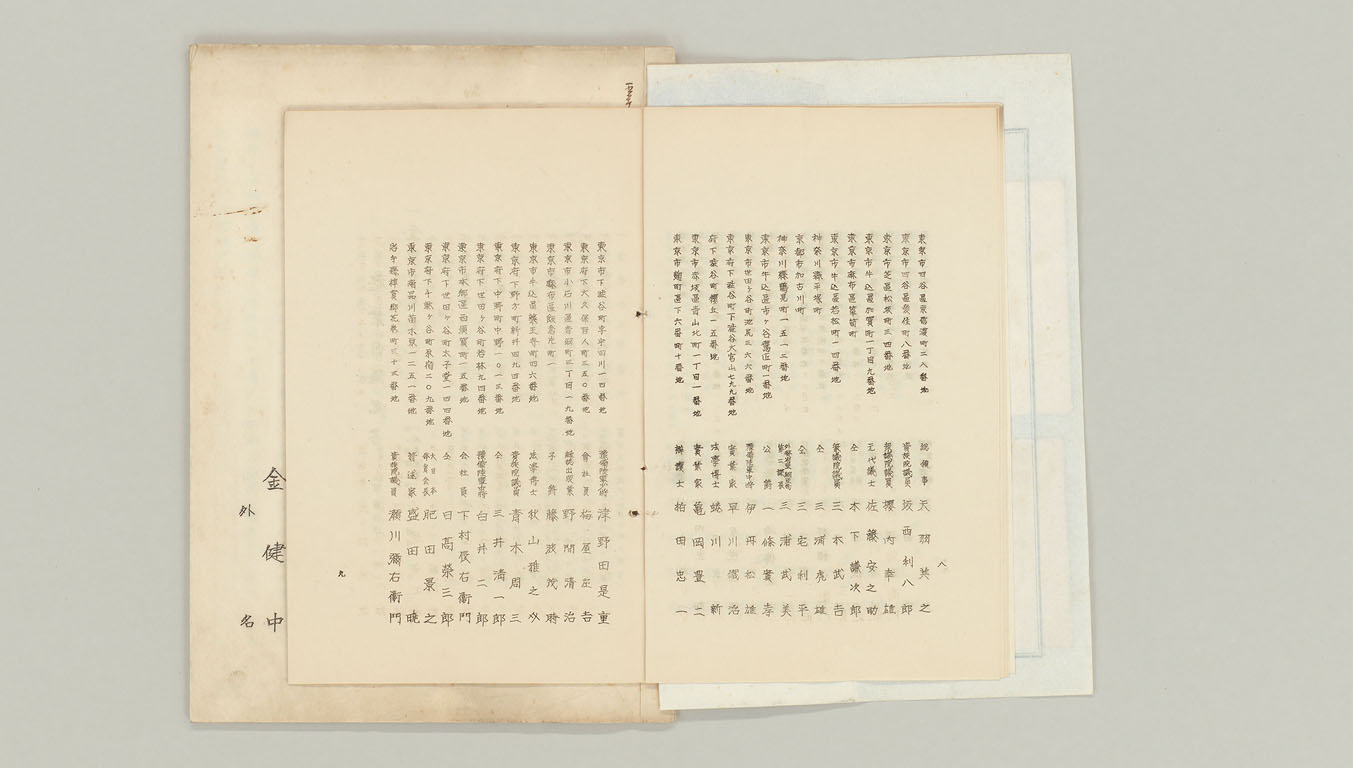 東京市四谷區東信濃町二八番地 總領事 天羽英之
東京市四谷區愛住町八番地 貴族院議員 坂西利八郎
東京市芝區松坂町三四番地 衆議院議員 櫻内幸雄
東京市牛込區加賀町一丁目九番地 代議士 佐藤安之助
東京市麻布區簞笥町 仝 木下謙次郎
東京市牛込區若松町一四番地 衆議院議員 三木武吉
神奈川縣平塚町 仝 三浦虎雄
京都市加古川町 仝 三宅利平
神奈川縣鶴見町一五一二番地 三浦武美
東京市牛込區市ヶ谷鷹匠町一番地 公爵 一條實孝
東京市世田ヶ谷町池尻三六六番地 豫備陸軍中將 伊丹松雄
東京府下澁谷町下澁谷大宮山七九九番地 實業家 早川鐵治
府下澁谷町櫻丘一五番地 法學博士 蜷川新
東京市赤坂區青山北町一丁目一番地 實業家 龜岡豊二
東京市麹町區下六番町十番地 辯護士 柏田忠一
八
東京市下澁谷町字宇田川一四番地 豫備陸軍少將 津野田是重
東京府下大久保百人町三五〇番地 會社員 梅屋庄吉
東京市小石川區音羽町三丁目一九番地 雜誌出版業 野間清治
東京市麻布區飯倉片町一 子爵 藤波茂時
東京市牛込區藥王寺町四六番地 法學博士 秋山雅之介
東京府下野方町新井四九四番地 貴族院議員 青木周三
東京府下中野町中野一〇一三番地 仝 三井清一郎
東京府下世田ヶ谷町若林九四番地 豫備陸軍中將 白井二郎
東京市本郷區西須賀町一五番地 會社員 下村辰右衞門
東京府下世田ヶ谷町太子堂一四四番地 仝 日高榮三郎
東京府下千駄ヶ谷町原宿二〇九番地 肥田景之
東京市南品川苗木原一二五一番地 著述家 盛田曉
貴族院議員 瀬川彌右衞門
九
金健中
外 名